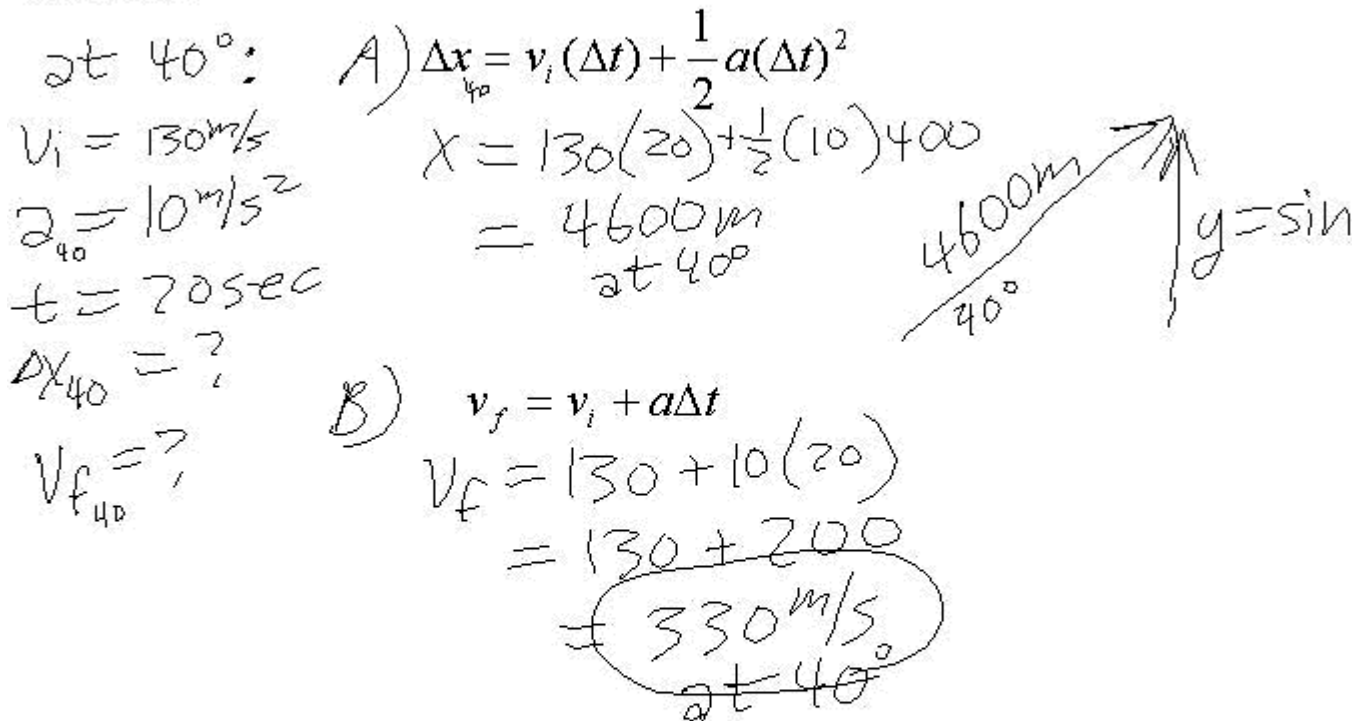 at 40°:
Vi = 130 m/s
a40 = 10 m/s²
t = 20 sec
Δx40 = ?
Vf40 = ?
A) Δx40 = vi(Δt) + 1/2 a(Δt)²
X = 130(20) + 1/2(10)400
= 4600m
at 40°
4600m
40°
y = sin
B) vf = vi + aΔt
Vf = 130 + 10(20)
= 130 + 200
= 330 m/s
at 40°